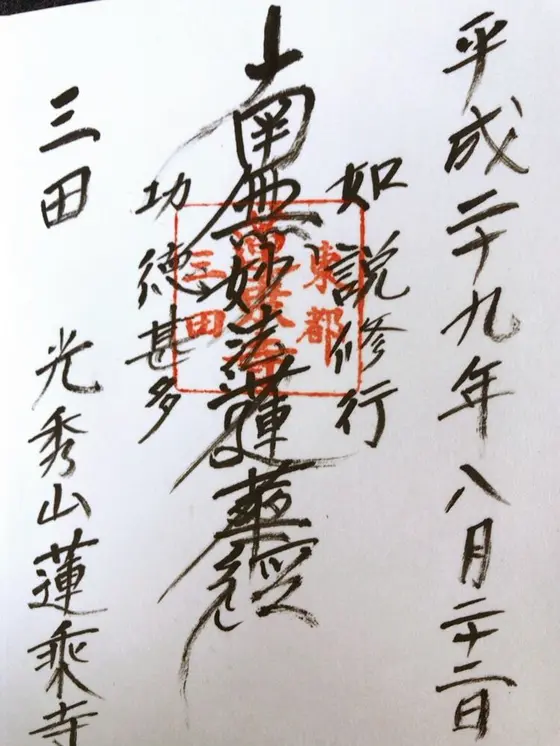 平成二十九年八月二十二日
如説修行
南無妙法蓮華経
功徳甚多
三田 光秀山蓮乗寺
東都
三田